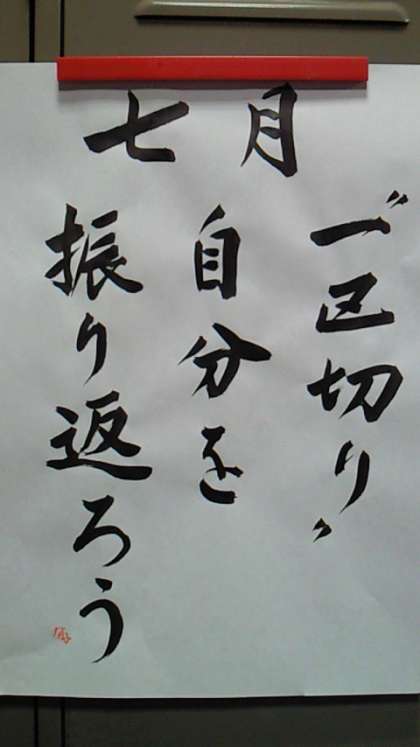 七月
〝一区切り〟
自分を
振り返ろう